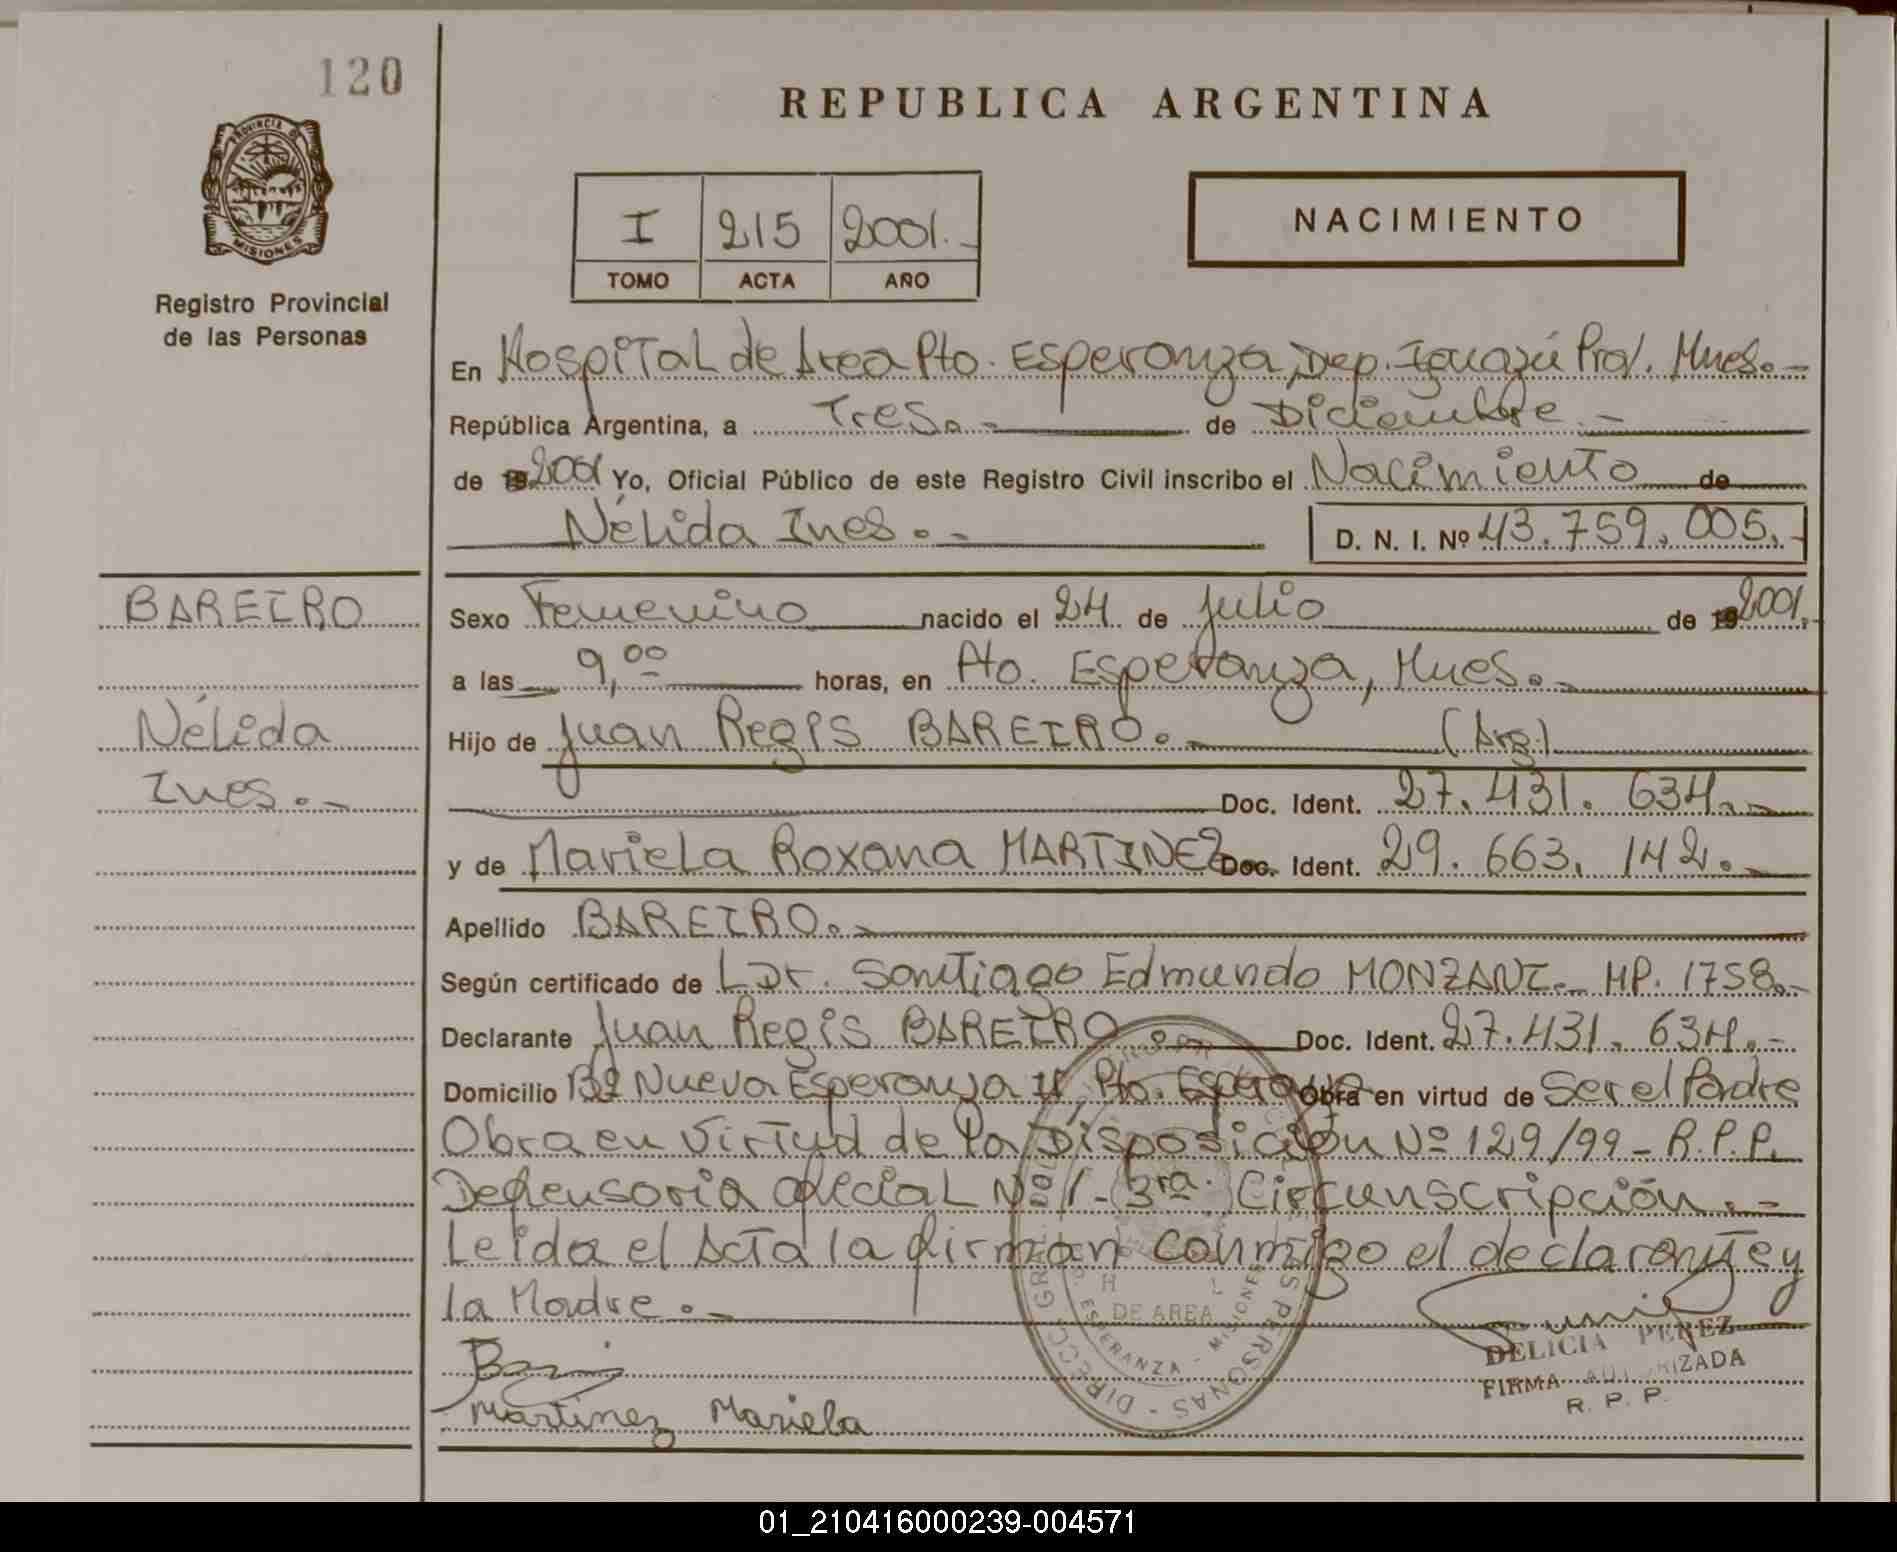 120
REPUBLICA ARGENTINA
PROVINCIA DE
MISIONES
Registro Provincial
de las Personas
I 215 2001.-
TOMO ACTA AÑO
NACIMIENTO
En Hospital de Area Pto. Esperanza, Dep. Iguazú Prov. Mnes.-
República Argentina, a Tres.- de Diciembre.-
de 2001 Yo, Oficial Público de este Registro Civil inscribo el Nacimiento de
Nélida Ines.- D. N. I. Nº 43.759.005.-
BAREIRO
Sexo Femenino nacido el 24 de Julio de 2001.-
a las 9,00 horas, en Pto. Esperanza, Mnes.-
Nélida
Hijo de Juan Regis BAREIRO.- (Arg.)
Ines.-
Doc. Ident. 27.431.634.-
y de Mariela Roxana MARTINEZ Doc. Ident. 29.663.142.-
Apellido BAREIRO.-
Según certificado de Dr. Santiago Edmundo MONZANI.- MP. 1758.-
Declarante Juan Regis BAREIRO.- Doc. Ident. 27.431.634.-
Domicilio Bº Nueva Esperanza II, Pto. Esperanza Obra en virtud de Ser el Padre
Obra en virtud de la Disposición Nº 129/99 - R.P.P.
Defensoria oficial Nº 1 - 3ra. Circunscripción.-
Leida el Acta la firman conmigo el declarante y
la Madre.-
DIRECC. GRAL. PERSONAS
DE AREA
ESPERANZA - MISIONES
DELICIA PEREZ
FIRMA AUTORIZADA
R. P. P.
Martinez Mariela
01_210416000239-004571